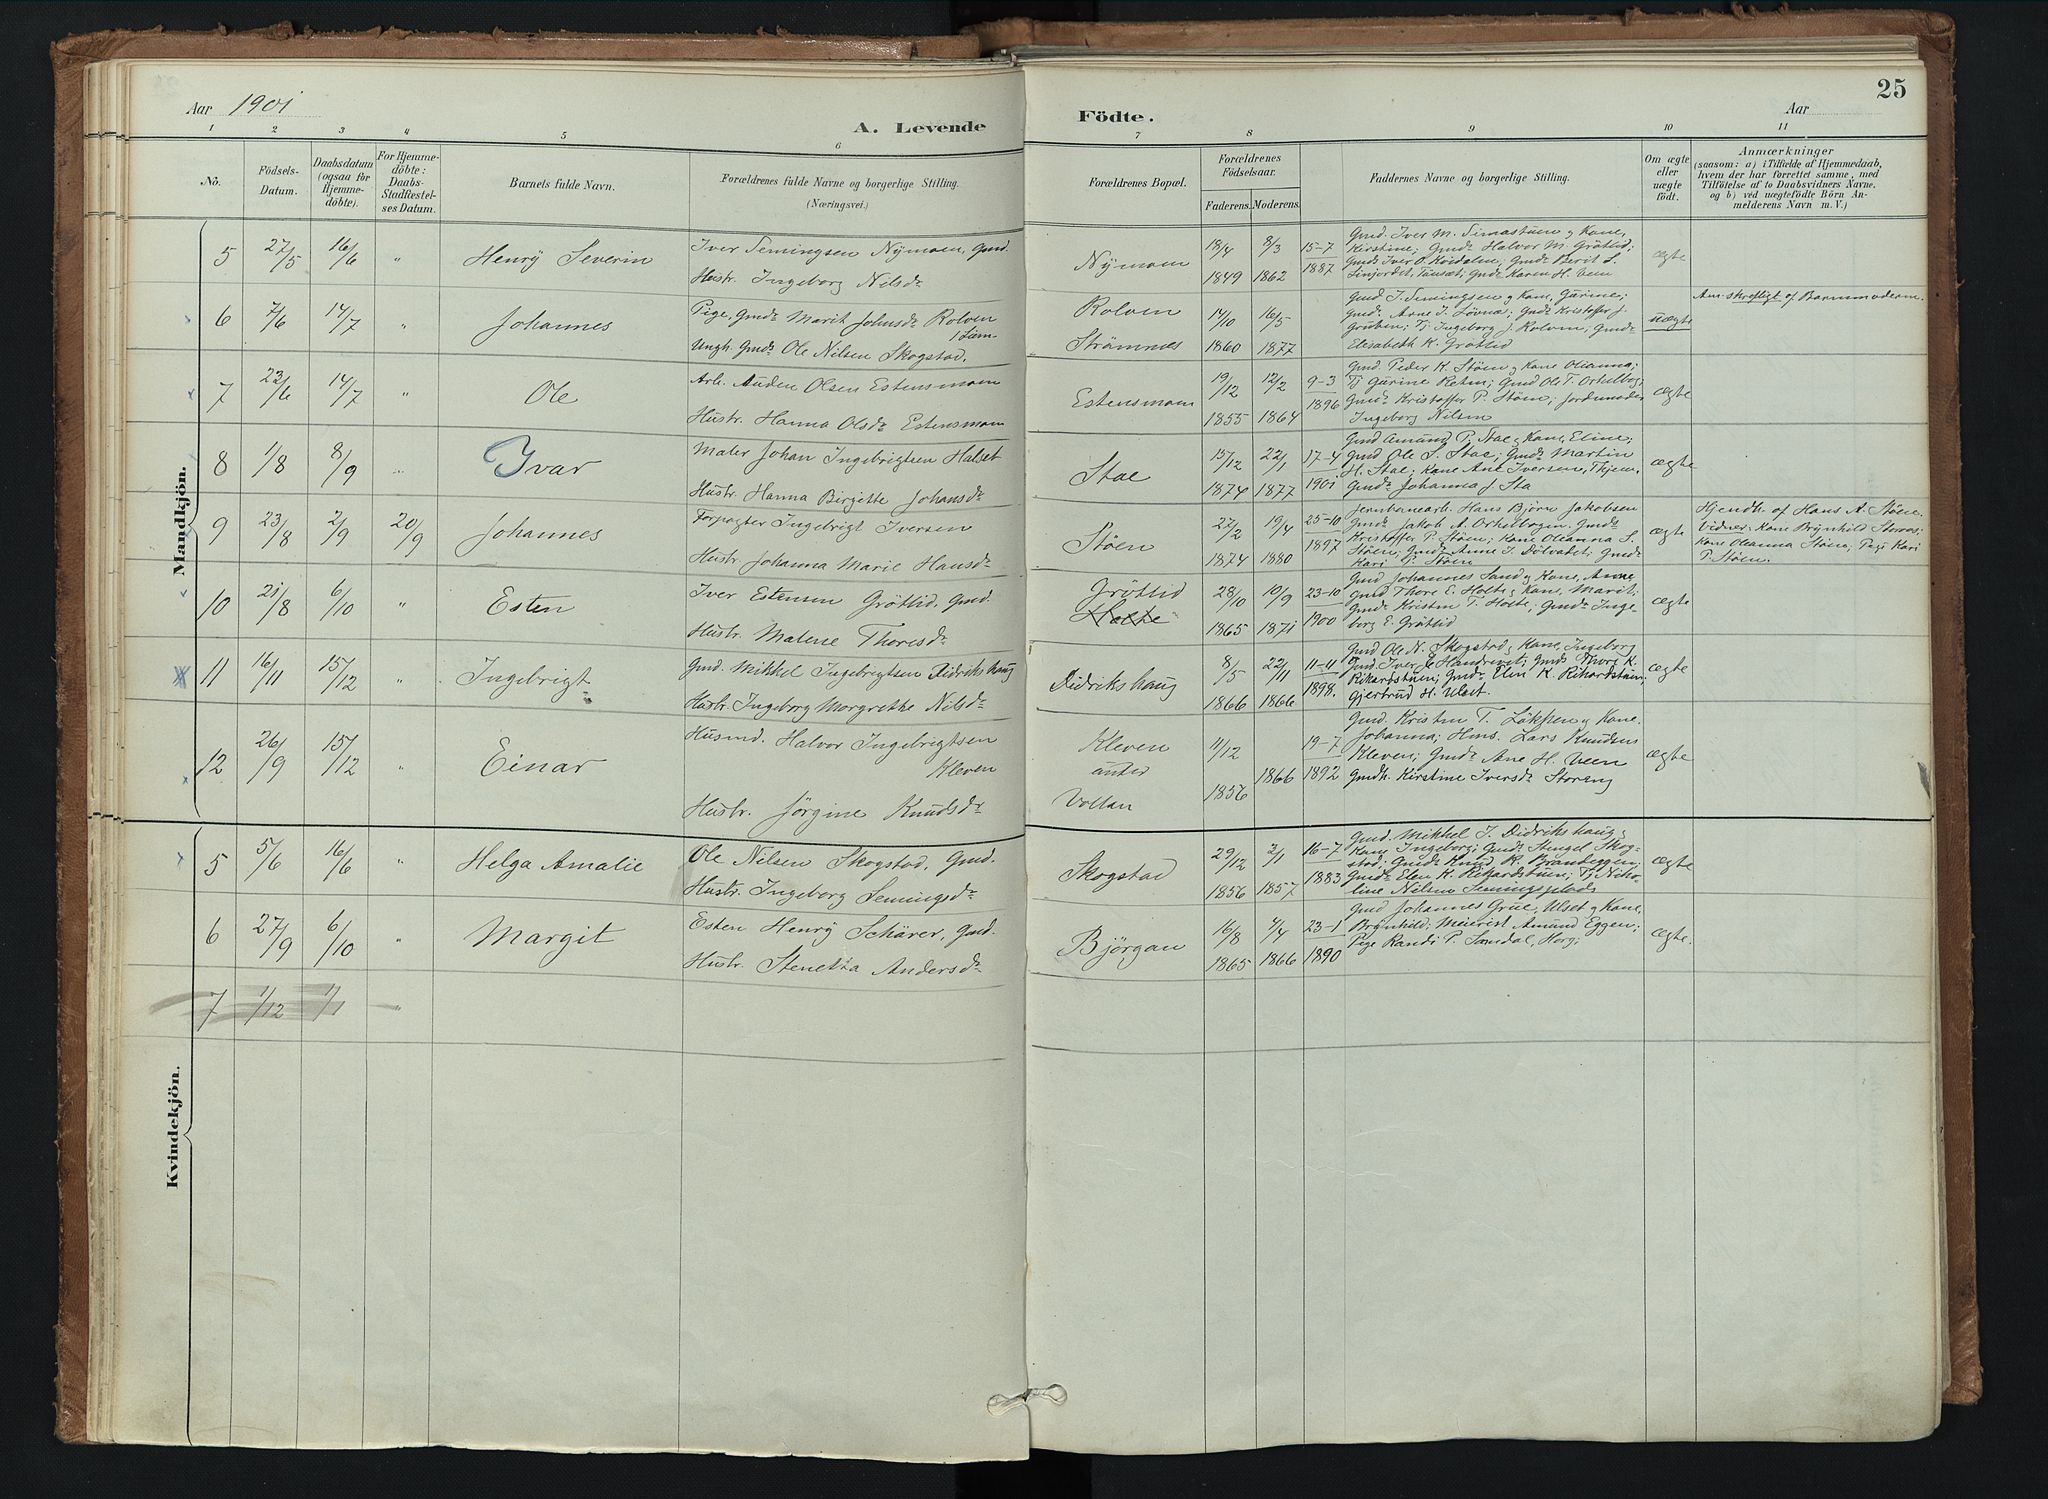 Aar 1901
A. Levende Födte.
Aar
25
1 2 3 4 5 6 7 8 9 10 11
No.
Födsels-Datum.
Daabsdatum (ogsaa for Hjemme-döbte).
For Hjemme-döbte: Daabs-Stadfæstel-ses Datum.
Barnets fulde Navn.
Forældrenes fulde Navne og borgerlige Stilling.
(Næringsvei.)
Forældrenes Bopæl.
Forældrenes Födselsaar.
Faderens. Moderens.
Faddernes Navne og borgerlige Stilling.
Om ægte eller uægte födt.
Anmærkninger
(saasom: a) i Tilfælde af Hjemmedaab,
hvem der har forrettet samme, med
Tilföielse af to Daabsvidners Navne,
og b) ved uægtefödte Börn An-
melderens Navn m. V.)
Mandkjön.
5 27/5 16/6 " Henrÿ Severin
Iver Semingsen Nÿmoen, Gmd.
Hustr. Ingeborg Nilsdr
Nÿmoen
18/4 1849 8/3 1862 15-7 1887
Gmd. Iver M. Simastuen & Kone,
Kirstine; Gmds Halvor M. Grötlid;
Gmds Iver O. Koidalen; Gmdr Berit S.
Linjordet, Tönsæt; Gmdr Karen H. Veen
ægte
6 7/6 14/7 " Johannes
Pige, Gmdr Marit Johnsdr Rolven
Ungk. Gmds Ole Nilsen Skogstad.
Rolven
Strömnes
14/10 1860 16/5 1877
Gmd J. Semingsen & Kone, Gurine;
Gmds Arne J. Lövnæ; Gmds Kristoffer J.
Gruben; Tj. Ingeborg J. Rolven; Gmdr
Elisabeth K. Grötlid
uægte
Anm. skriftligt af Barnmoderen.
7 23/6 14/7 " Ole
Arb. Auden Olsen Estensmoen
Hustr. Hanna Olsdr Estensmoen
Estensmoen
19/12 1855 12/2 1864 9-3 1896
Gmd Peder K. Stöen & Kone Oleanna;
Tj Gurine Rehm; Gmd Ole T. Orhelbog;
Gmds Kristoffer P. Stöen; Jordemoder
Ingeborg Nilsen
ægte
8 1/8 8/9 " Ivar
Maler Johan Ingebrigtsen Halset
Hustr. Hanna Birgitte Johansdr
Stae
15/12 1874 22/1 1877 17-4 1901
Gmd Amund P. Stae & Kone, Eline;
Gmd Ole S. Stae; Gmds Martin
H. Stae; Kone Ane Iversen, Thjem;
Gmdr Johanna J. Sta
ægte
9 23/8 2/9 20/9 Johannes
Forpagter Ingebrigt Iversen
Hustr. Johanna Marie Hansdr
Stöen
27/2 1874 19/4 1880 25-10 1897
Jernbanearb. Hans Björn Jakobsen
Gmds Jakob A. Orhelbogen, Gmds
Kristoffer P. Stöen; Kone Oleanna S.
Stöen; Gmdr Anne I. Dölvadet; Gmdr
Kari G. Stöen
ægte
Hjendb. af Hans A. Stöen.
Vidner: Kone Brÿnhild Storaas;
Kone Oleanna Stöen; Pige Kari
P. Stöen.
10 21/8 6/10 " Esten
Iver Estensen Grötlid, Gmd.
Hustr. Malene Thoresdr
Grötlid
Holte
28/10 1865 10/9 1871 23-10 1900
Gmd Johannes Sand & Kone, Anne
Gmd Thore E. Holte & Kone, Marit;
Gmds Kristen T. Holte; Gmdr Inge-
borg E. Grötlid
ægte
11 16/11 15/12 " Ingebrigt
Gmd. Mikkel Ingebrigtsen Didrikshaug
Hustr. Ingeborg Margrethe Nilsdr
Didrikshaug
8/5 1866 22/11 1866 11-11 1898.
Gmd Ole N. Skogstad & Kone, Ingeborg
Gmd. Iver E. Handrivet; Gmds Thore K.
Rikardstuen; Gmdr Elen K. Rikardstuen;
Gjertrud H. Ulset.
ægte
12 26/9 15/12 " Einar
Husmd. Halvor Ingebrigtsen
Kleven
Hustr. Jörgine Knudsdr
Kleven
under
Vollan
11/12 1856 1866 19-7 1892
Gmd. Kristen T. Lökken & Kone,
Johanna; Hms. Lars Knudsen
Kleven; Gmdr Ane H. Veen
Gmdk. Kirstine Iversdr Storeng
ægte
Kvindekjön.
5 5/6 16/6 " Helga Amalie
Ole Nilsen Skogstad, Gmd.
Hustr. Ingeborg Semingsdr
Skogstad
29/12 1856 3/1 1857 16-7 1883
Gmd. Mikkel I. Didrikshaug &
Kone Ingeborg; Gmds Stengel Skog-
stad; Gmds Knud R. Brandeggen;
Gmdr Elen K. Rikardstuen; Tj Niko-
line Nilsen Semingsplads
ægte
6 27/9 6/10 " Margit
Esten Henrÿ Schärer, Gmd.
Hustr. Stenetta Andersdr
Björgan
16/8 1865 4/4 1866 23-1 1890
Gmd Johannes Grue, Ulset & Kone,
Brÿnhild; Meierist Amund Eggen;
Pige Randi P. Samdal, Horg;
ægte.
7 1/12 1/1 "